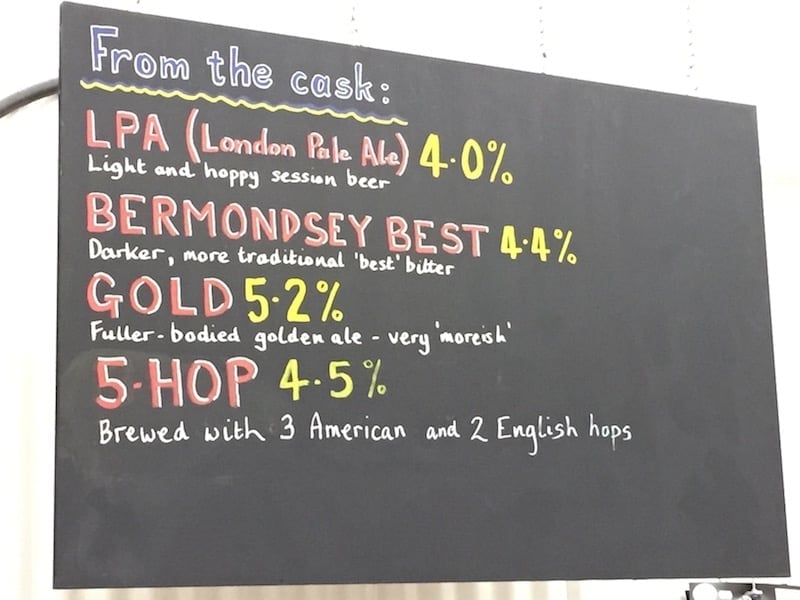 From the cask:
LPA (London Pale Ale) 4.0%
Light and hoppy session beer
BERMONDSEY BEST 4.4%
Darker, more traditional 'best' bitter
GOLD 5.2%
Fuller-bodied golden ale - very 'moreish'
5-HOP 4.5%
Brewed with 3 American and 2 English hops